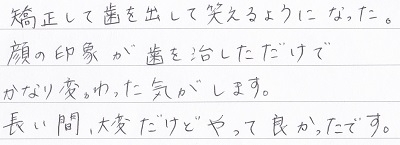 矯正して歯を出して笑えるようになった。
顔の印象が歯を治しただけで
かなり変わった気がします。
長い間、大変だけどやって良かったです。